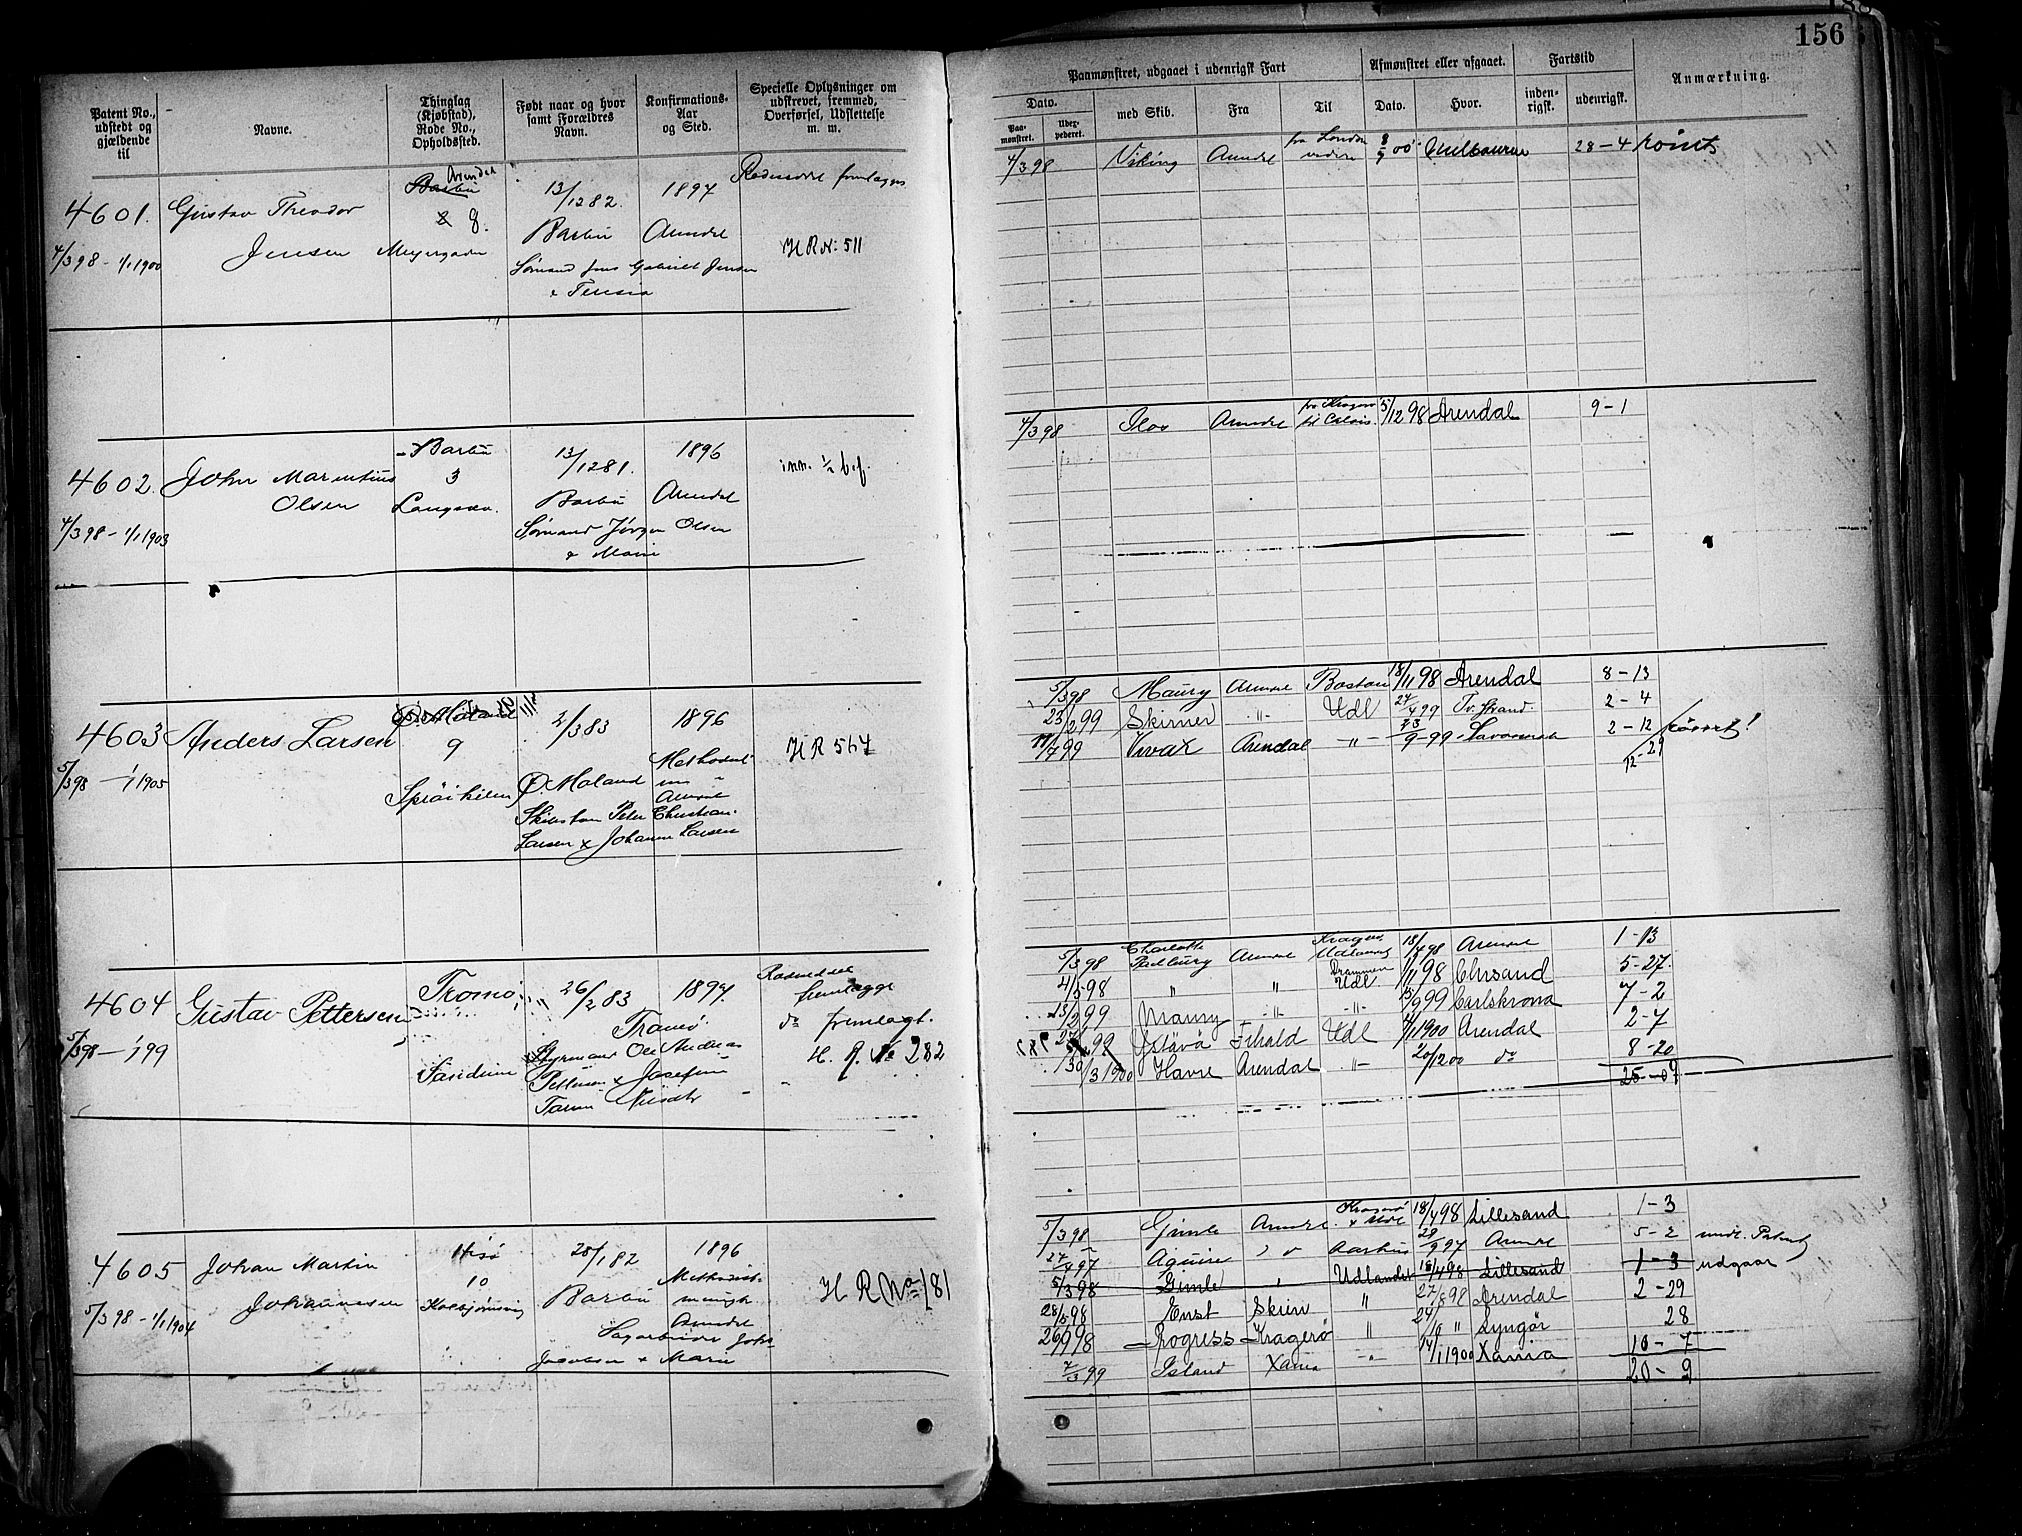 156
Patent No., udstedt og gjældende til
Navne.
Thinglag (Kjøbstad), Rode No., Opholdssted.
Født naar og hvor samt Forældres Navn.
Konfirmations-Aar og Sted.
Specielle Oplysninger om udskrevet, fremmed, Overførsel, Udslettelse m. m.
Paamønstret, udgaaet i udenrigsk Fart
Afmønstret eller afgaaet.
Fartstid
Anmærkning.
Dato.
Paa-mønstret.
med Skib.
Fra
Til
Dato.
Hvor.
inden-rigsk.
udenrigsk.
4601.
4/3 98 - 1/1 1900
Gustav Theodor
Jensen
Arendal
Barbu
2 8.
13/12 82.
Barbu
Sømand Jens Gabriel Jensen
& Teresia
1897
Arendal
Rodeseddel fremlægges
H R N: 511
4/3 98 Viking Arendal fra London videre 8/7 00 Melbourne 28 - 4 rømt
4602.
4/3 98 - 1/1 1903
John Marentius
Olsen
Barbu
3
Langsæv.
13/12 81.
Barbu
Sømand Jørgen Olsen
& Marie
1896
Arendal
inn. 1/2 b.f.
4/3 98 Arendal fra Kragerø til Calais. 5/12 98 Arendal 9 - 1
4603
5/3 98 - 1/1 1905
Anders Larsen
Ø. Moland
9
Spröikilen
2/3 83
Ø. Moland
Peter Christian
Larsen & Johanne Larsen
1896
Arendal
H R 567
5/3 98 Maury Arendal Boston 18/11 98 Arendal 8 - 13
23/2 99 Skirner " Udl 27/4 99 Tv.strand 2 - 4
11/7 99 Vivax Arendal " 23/9 - 99 2 - 12 rømt!
12 - 29
4604
5/3 98 - 1/1 99
Gustav Pettersen
Tromø
26/2 83
Tromø
Styrmand Ole Andreas
Pettersen & Josefine
1897.
Rodeseddel
fremlægge
do fremlagt.
H. R. No 282
5/3 98 Charlotte Padbury Arendal Kragerø Udlandet 18/4 98 Arendal 1 - 13
4/5 98 " " Drammen Udl 1/11 98 Chrsand 5 - 27.
13/2 99 Maury " 15/9 99 Carlskrona 7 - 2
Fshald Udl 4/1 1900 Arendal 2 - 7
30/3 1900 Havre Arendal " 20/12 00 do 8 - 20
25 - 09
4605
5/3 98 - 1/1 1904
Johan Martin
Johannesen
Hisø
10
Kolbjørnsvig
28/1 82
Barbu
Sagarbeider Joh.
Jacobsen & Marie
1896
Methodist-
menigh
Arendal
H R No 181
5/3 98 Gimle Arendal Kragerø & Udl 18/4 98 Lillesand 1 - 3
27/4 97 Aquire do Aarhus 28/9 97 Arendal 5 - 2 und. Patent
5/3 98 Gimle " Udlandet 18/4 98 Lillesand 1 - 3 udgaar
28/5 98 Enst Skien " 27/8 98 Arendal 2 - 29
26/9 98 Progress Kragerø " 24/10 " Lyngør 28
7/3 99 Island Xania " 14/1 1900 Xania 10 - 7
20 - 9